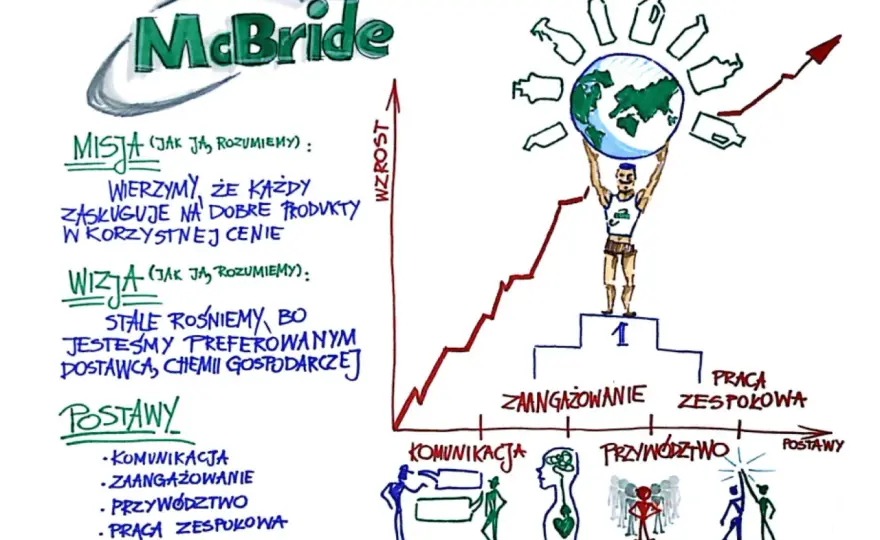 McBride
MISJA (JAK JĄ ROZUMIEMY):
WIERZYMY, ŻE KAŻDY
ZASŁUGUJE NA DOBRE PRODUKTY
W KORZYSTNEJ CENIE
WIZJA (JAK JĄ ROZUMIEMY):
STALE ROŚNIEMY, BO
JESTEŚMY PREFEROWANYM
DOSTAWCĄ CHEMII GOSPODARCZEJ
POSTAWY
• KOMUNIKACJA
• ZAANGAŻOWANIE
• PRZYWÓDZTWO
• PRACA ZESPOŁOWA
WZROST
1
ZAANGAŻOWANIE
PRACA
ZESPOŁOWA
KOMUNIKACJA
PRZYWÓDZTWO
POSTAWY